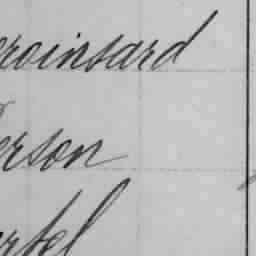 eroinsard
erson
ertel